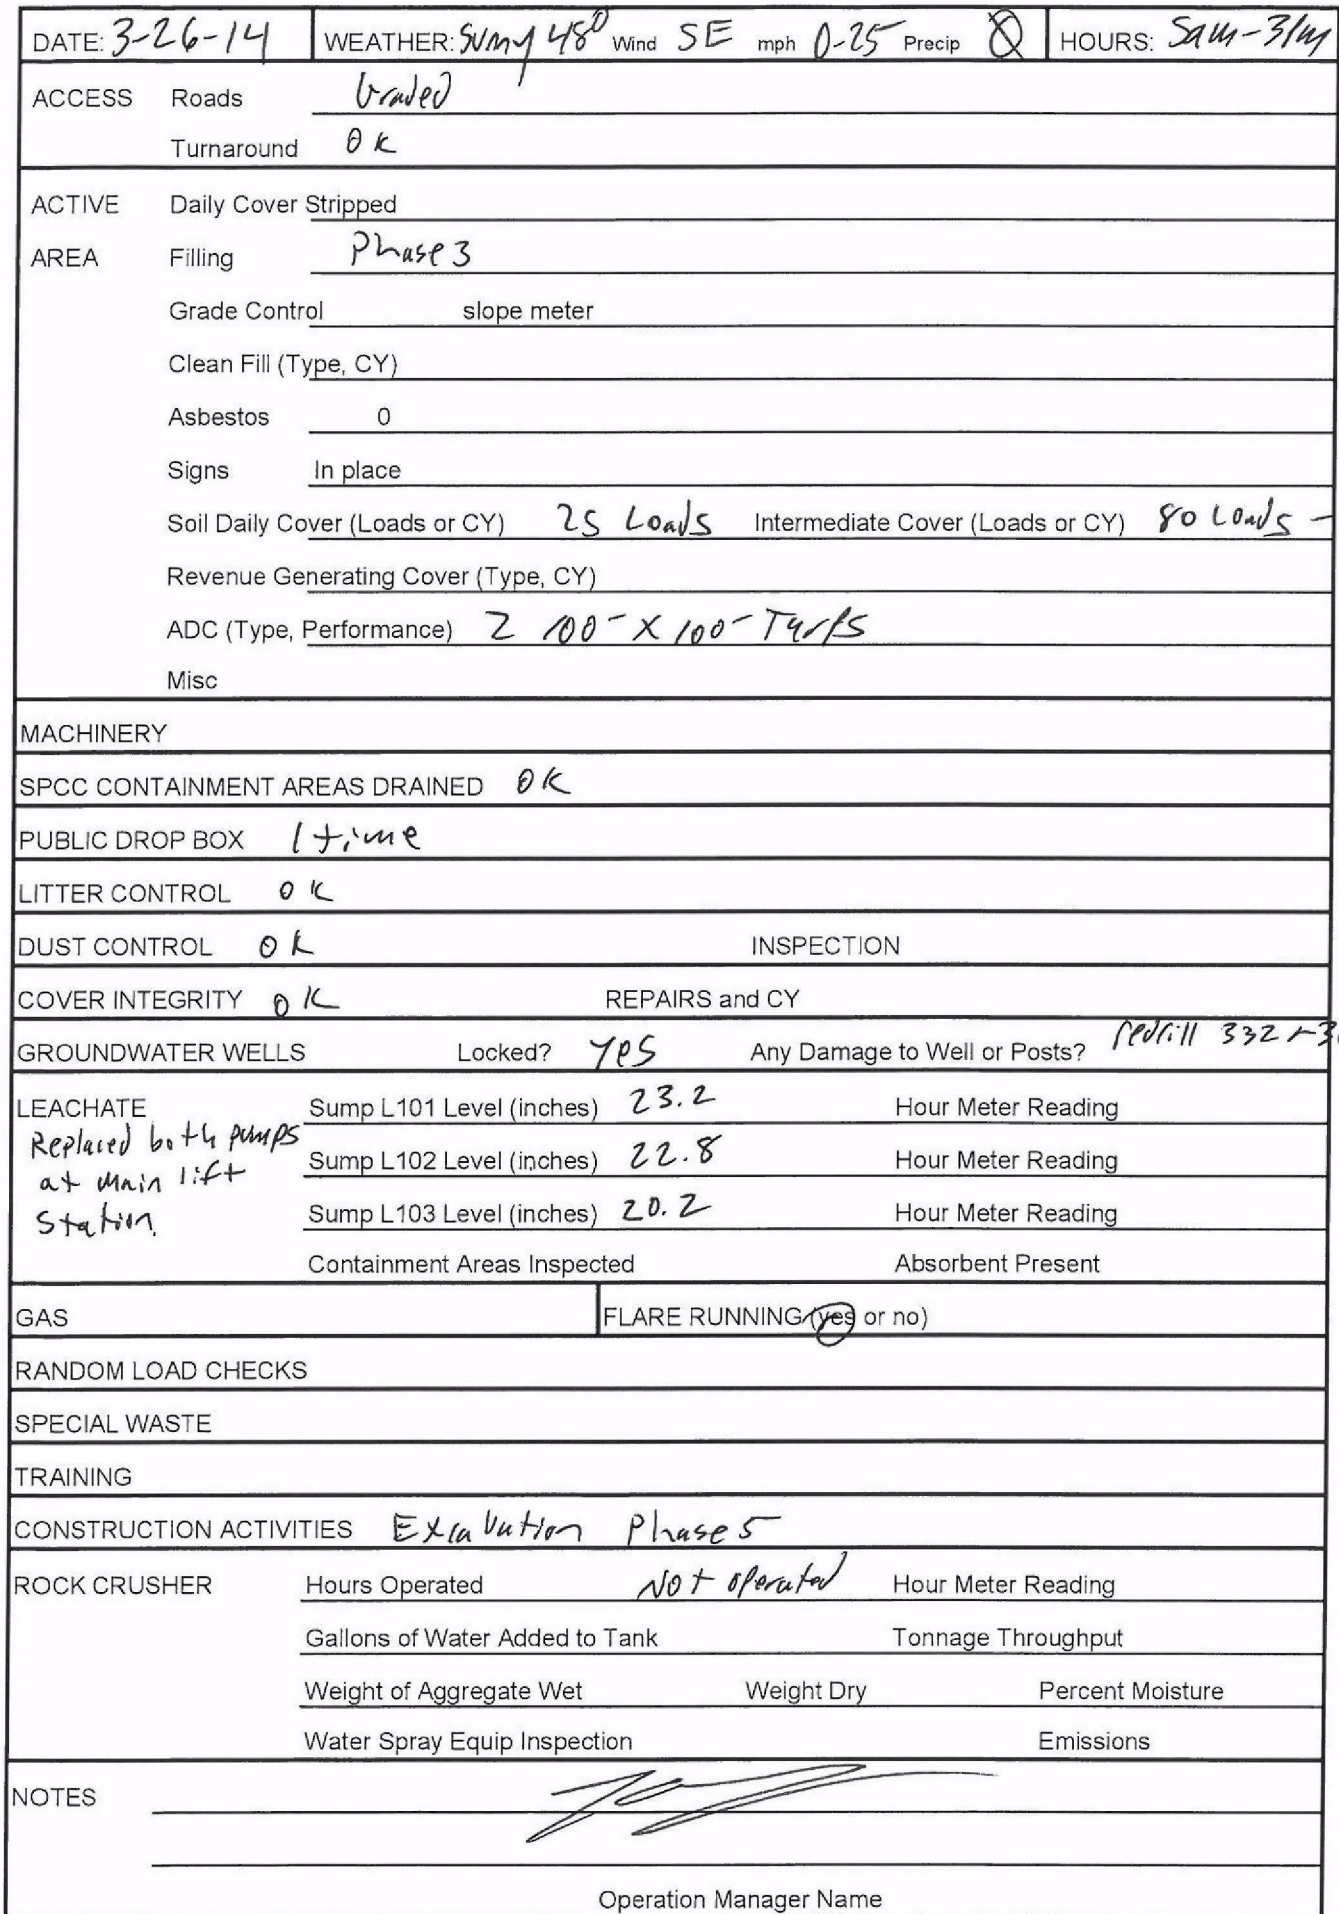 DATE: 3-26-14 WEATHER: Sunny 48° Wind SE mph 0-25 Precip 0 HOURS: 5am-3pm
ACCESS Roads Graded
Turnaround OK
ACTIVE Daily Cover Stripped
AREA Filling Phase 3
Grade Control slope meter
Clean Fill (Type, CY)
Asbestos 0
Signs In place
Soil Daily Cover (Loads or CY) 25 Loads Intermediate Cover (Loads or CY) 80 Loads -
Revenue Generating Cover (Type, CY)
ADC (Type, Performance) 2 100- X 100- Tarps
Misc
MACHINERY
SPCC CONTAINMENT AREAS DRAINED OK
PUBLIC DROP BOX 1 time
LITTER CONTROL OK
DUST CONTROL OK INSPECTION
COVER INTEGRITY OK REPAIRS and CY
GROUNDWATER WELLS Locked? yes Any Damage to Well or Posts? redrill 332
LEACHATE Sump L101 Level (inches) 23.2 Hour Meter Reading
Replaced both pumps
at main lift Sump L102 Level (inches) 22.8 Hour Meter Reading
Station. Sump L103 Level (inches) 20.2 Hour Meter Reading
Containment Areas Inspected Absorbent Present
GAS FLARE RUNNING (yes or no)
RANDOM LOAD CHECKS
SPECIAL WASTE
TRAINING
CONSTRUCTION ACTIVITIES Excavation Phase 5
ROCK CRUSHER Hours Operated Not operated Hour Meter Reading
Gallons of Water Added to Tank Tonnage Throughput
Weight of Aggregate Wet Weight Dry Percent Moisture
Water Spray Equip Inspection Emissions
NOTES
Operation Manager Name